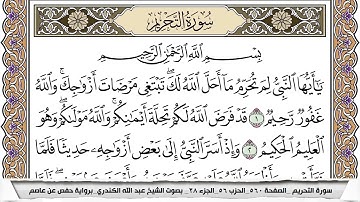 سُورَةُ التَّحْرِيمِ
بِسْمِ اللَّهِ الرَّحْمَٰنِ الرَّحِيمِ
يَا أَيُّهَا النَّبِيُّ لِمَ تُحَرِّمُ مَا أَحَلَّ اللَّهُ لَكَ تَبْتَغِي مَرْضَاتَ أَزْوَاجِكَ وَاللَّهُ
غَفُورٌ رَّحِيمٌ ١ قَدْ فَرَضَ اللَّهُ لَكُمْ تَحِلَّةَ أَيْمَانِكُمْ وَاللَّهُ مَوْلَاكُمْ وَهُوَ
الْعَلِيمُ الْحَكِيمُ ٢ وَإِذْ أَسَرَّ النَّبِيُّ إِلَىٰ بَعْضِ أَزْوَاجِهِ حَدِيثًا فَلَمَّا
سورة التحريم _الصفحة ٥٦٠_ الحزب ٥٦_الجزء ٢٨_ بصوت الشيخ عبد الله الكندري_برواية حفص عن عاصم